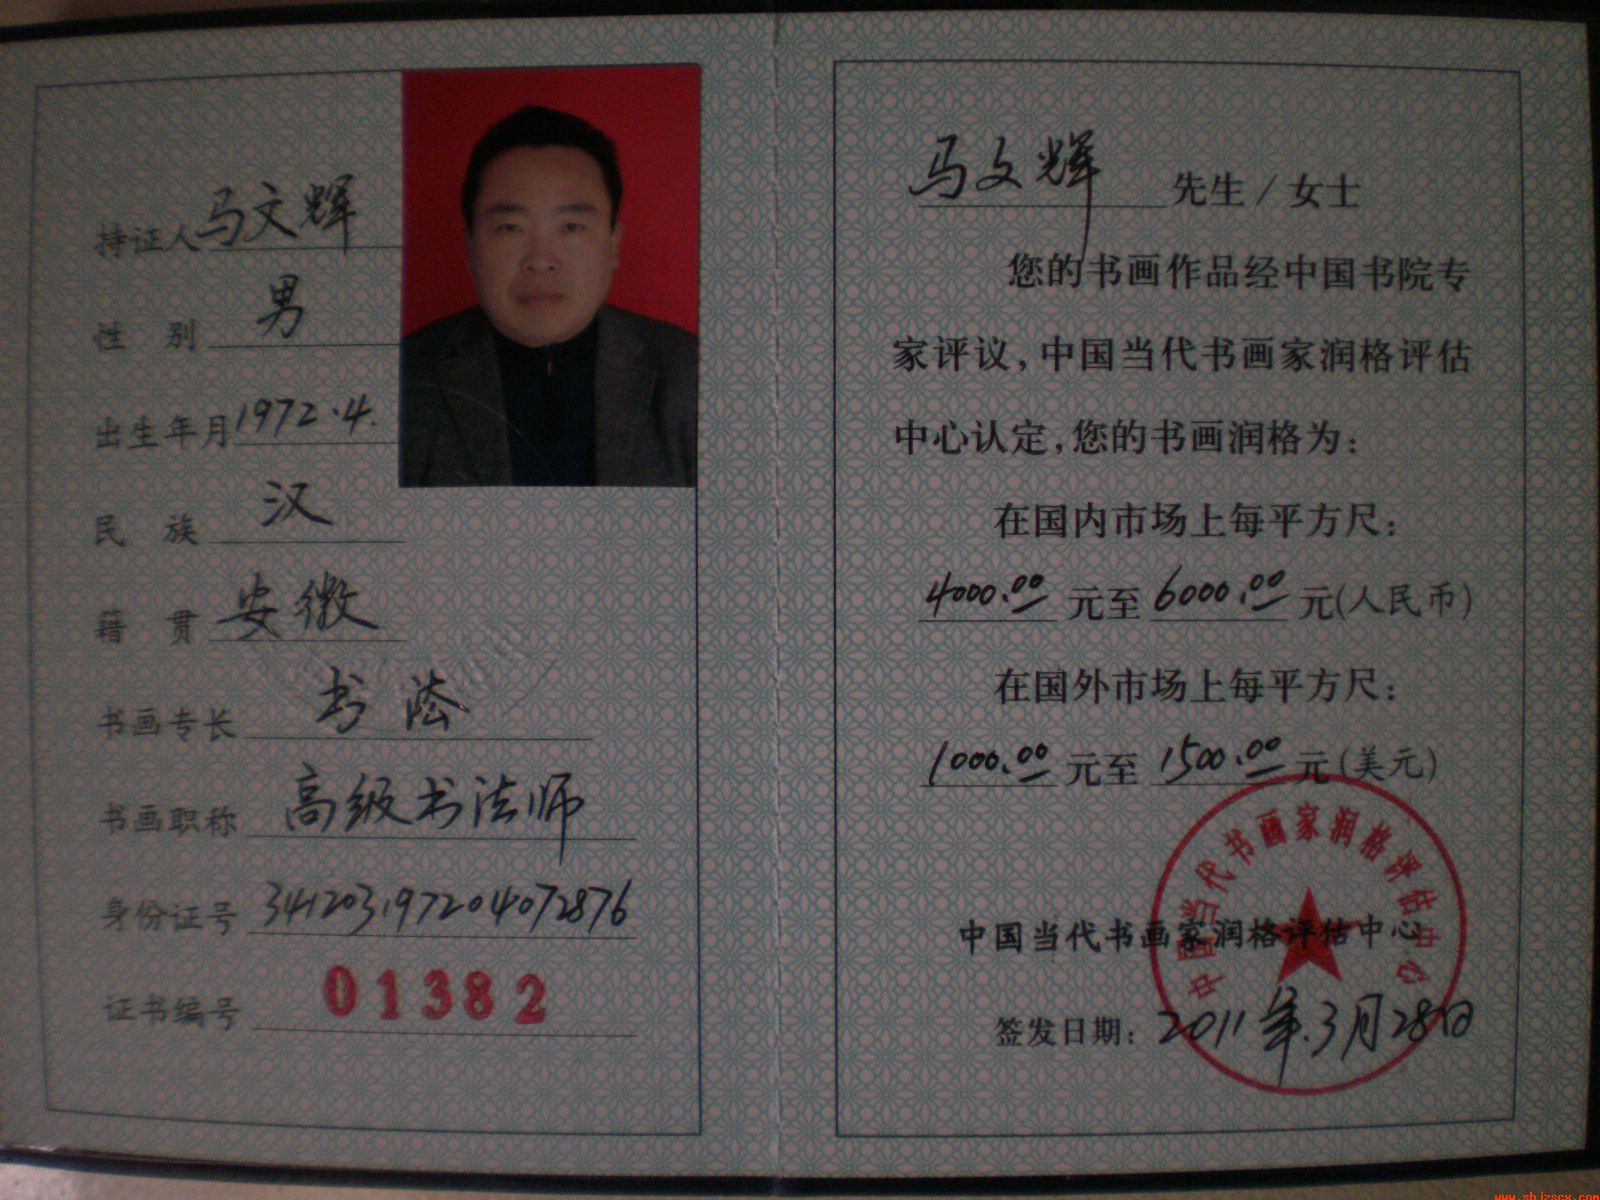 持证人 马文辉
性别 男
出生年月 1972.4.
民族 汉
籍贯 安徽
书画专长 书法
书画职称 高级书法师
身份证号 341203197204072876
证书编号 01382
马文辉 先生/女士
您的书画作品经中国书院专
家评议,中国当代书画家润格评估
中心认定,您的书画润格为:
在国内市场上每平方尺:
4000.00 元至 6000.00 元(人民币)
在国外市场上每平方尺:
1000.00 元至 1500.00 元(美元)
中国当代书画家润格评估中心
中国当代书画家润格评估中心
签发日期: 2011年.3月28日
www.shjzscx.com